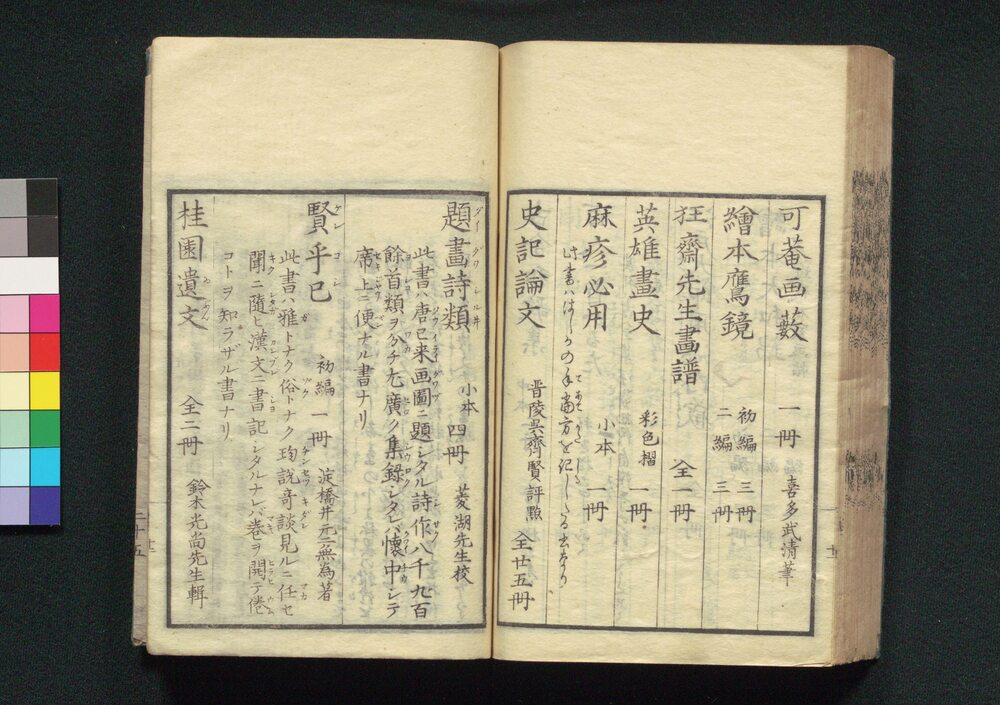 可菴画薮 一冊 喜多武清筆
繪本鷹鏡 初編 三冊
二編 三冊
狂齋先生畫譜 全一冊
英雄畫史 彩色摺 一冊
麻疹必用 小本 一冊
此書ハはしかの手當方を記したる書なり
史記論文 晋陵呉齊賢評點 全廿五冊
題畫詩類 小本 四冊 菱湖先生校
此書ハ唐已来画圖ニ題シタル詩作八千九百
餘首類ヲ分チ尤廣ク集録シタレバ懐中シテ
席上ニ便ナル書ナリ
賢乎已 初編 一冊 淀橋井元无無為著
此書ハ雅トナク俗トナク珎説竒談見ルニ任セ
聞ニ隨ヒ漢文ニ書記シタルナレバ巻ヲ開テ倦
コトヲ知ラザル書ナリ
桂園遺文 全二冊 鈴木光尚先生輯